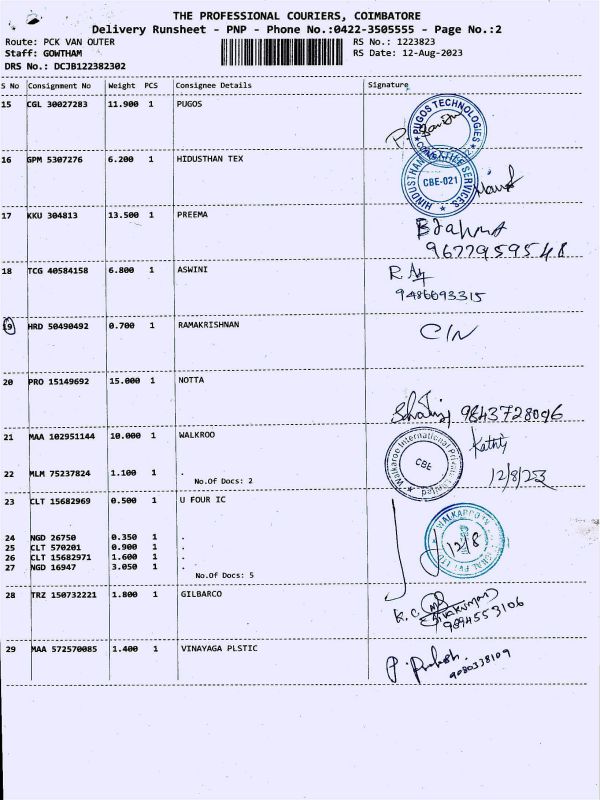 THE PROFESSIONAL COURIERS, COIMBATORE
Delivery Runsheet - PNP - Phone No.:0422-3505555 - Page No.:2
Route: PCK VAN OUTER RS No.: 1223823
Staff: GOWTHAM RS Date: 12-Aug-2023
DRS No.: DCJB122382302
S No Consignment No Weight PCS Consignee Details Signature
15 CGL 30027283 11.900 1 PUGOS
PUGOS TECHNOLOGIES
16 GPM 5307276 6.200 1 HIDUSTHAN TEX
HINDUSTHAN SERVICES
CBE-021
17 KKU 304813 13.500 1 PREEMA
9677959548
18 TCG 40584158 6.800 1 ASWINI
9486093315
19 HRD 50490492 0.700 1 RAMAKRISHNAN C/N
20 PRO 15149692 15.000 1 NOTTA
9843728096
21 MAA 102951144 10.000 1 WALKROO
Walkaroo International Private Limited
CBE
22 MLM 75237824 1.100 1 .
No.Of Docs: 2
23 CLT 15682969 0.500 1 U FOUR IC
24 NGD 26750 0.350 1 .
25 CLT 570201 0.900 1 .
26 CLT 15682971 1.600 1 .
27 NGD 16947 3.050 1 .
12/8
No.Of Docs: 5
28 TRZ 150732221 1.800 1 GILBARCO
K.C. Sivakumar
9894553106
29 MAA 572570085 1.400 1 VINAYAGA PLSTIC
9080338109